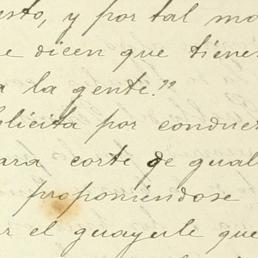 esto, y por tal mo
e dicen que tienes
a la gente."
licita por conduc
ara corte de gual
proponiéndose
ar el guayule que